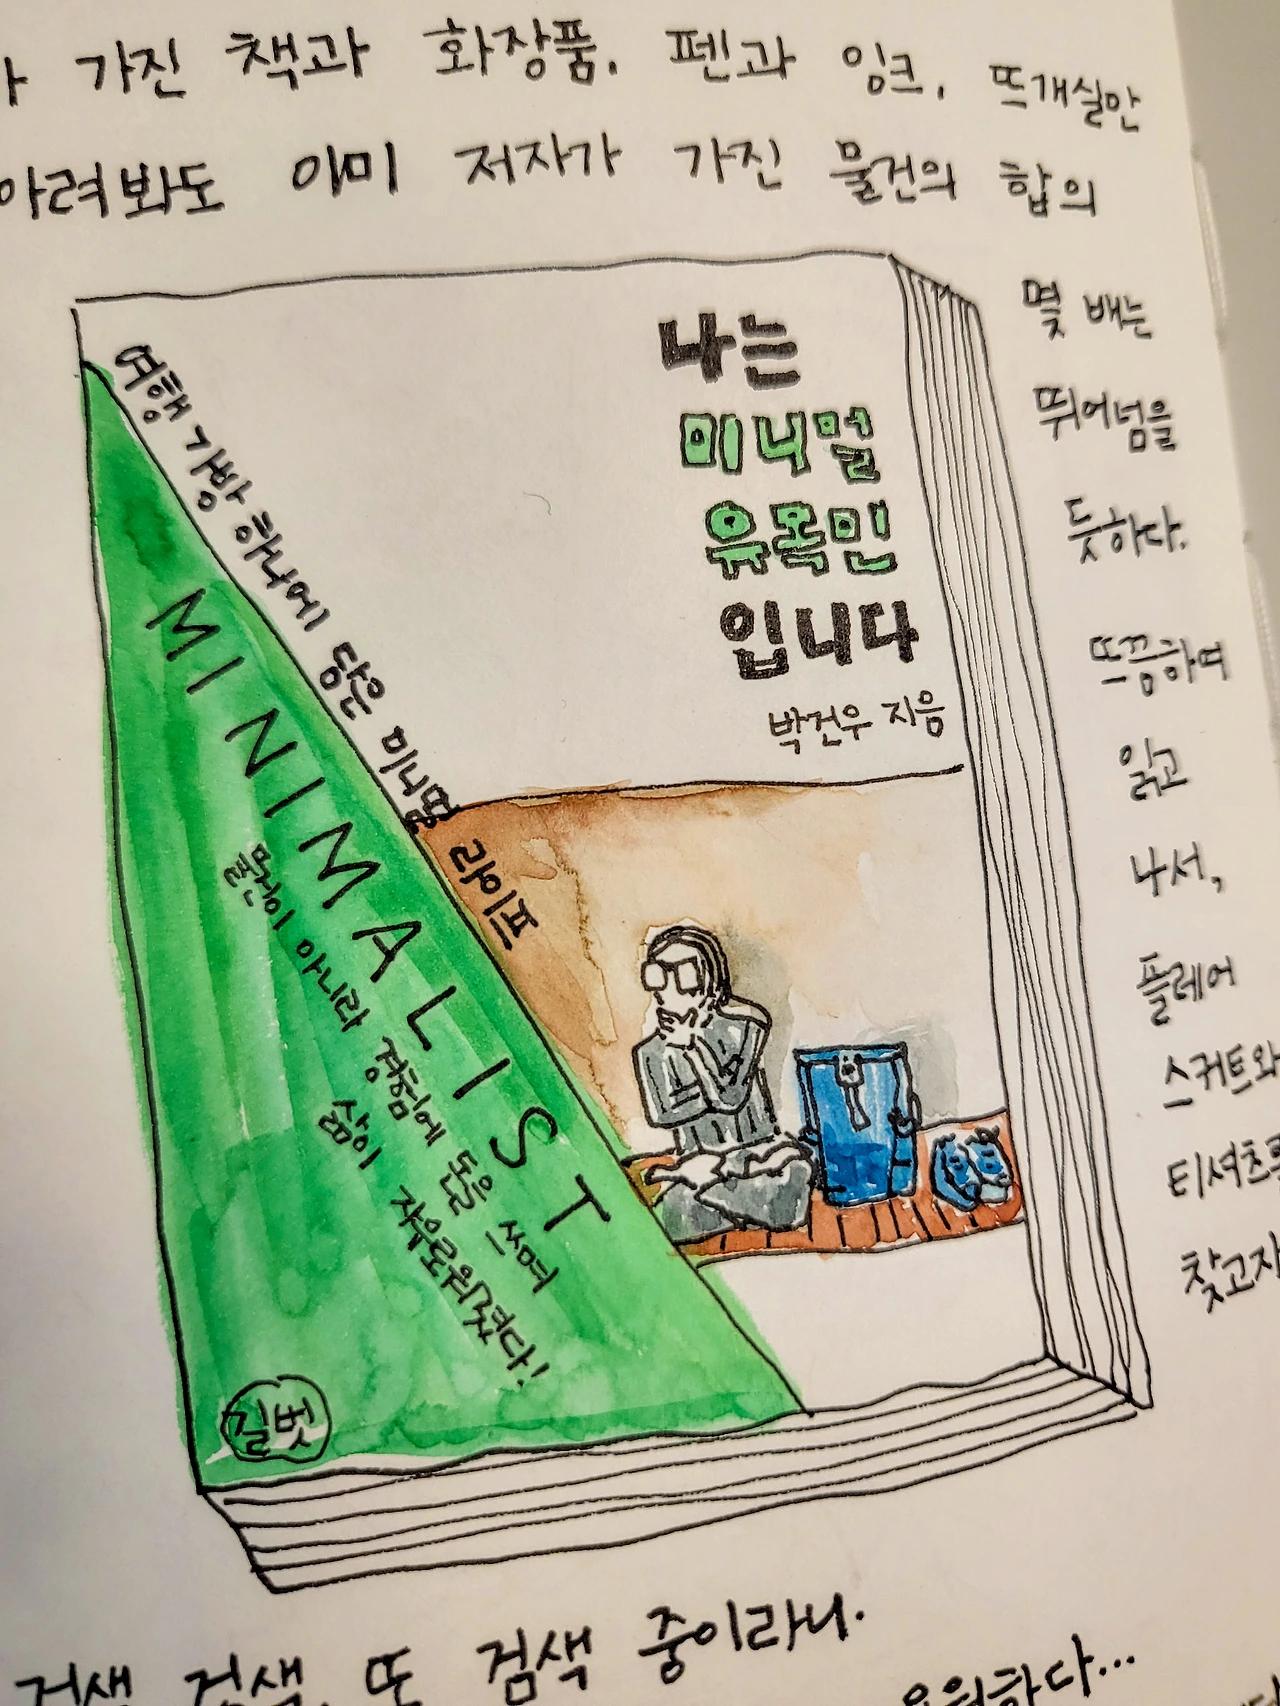 가진 책과 화장품. 펜과 잉크, 뜨개실만
아려봐도 이미 저자가 가진 물건의 합의
몇 배는
뛰어넘을
듯하다.
뜨끔하며
읽고
나서,
플레어
스커트와
티셔츠를
찾고자
나는
미니멀
유목민
입니다
박건우 지음
여행 가방 하나에 담은 미니멀 라이프
MINIMALIST
물건이 아니라 경험에 돈을 쓰며
삶이 자유로워졌다!
길벗
검색 검색, 또 검색 중이라니.